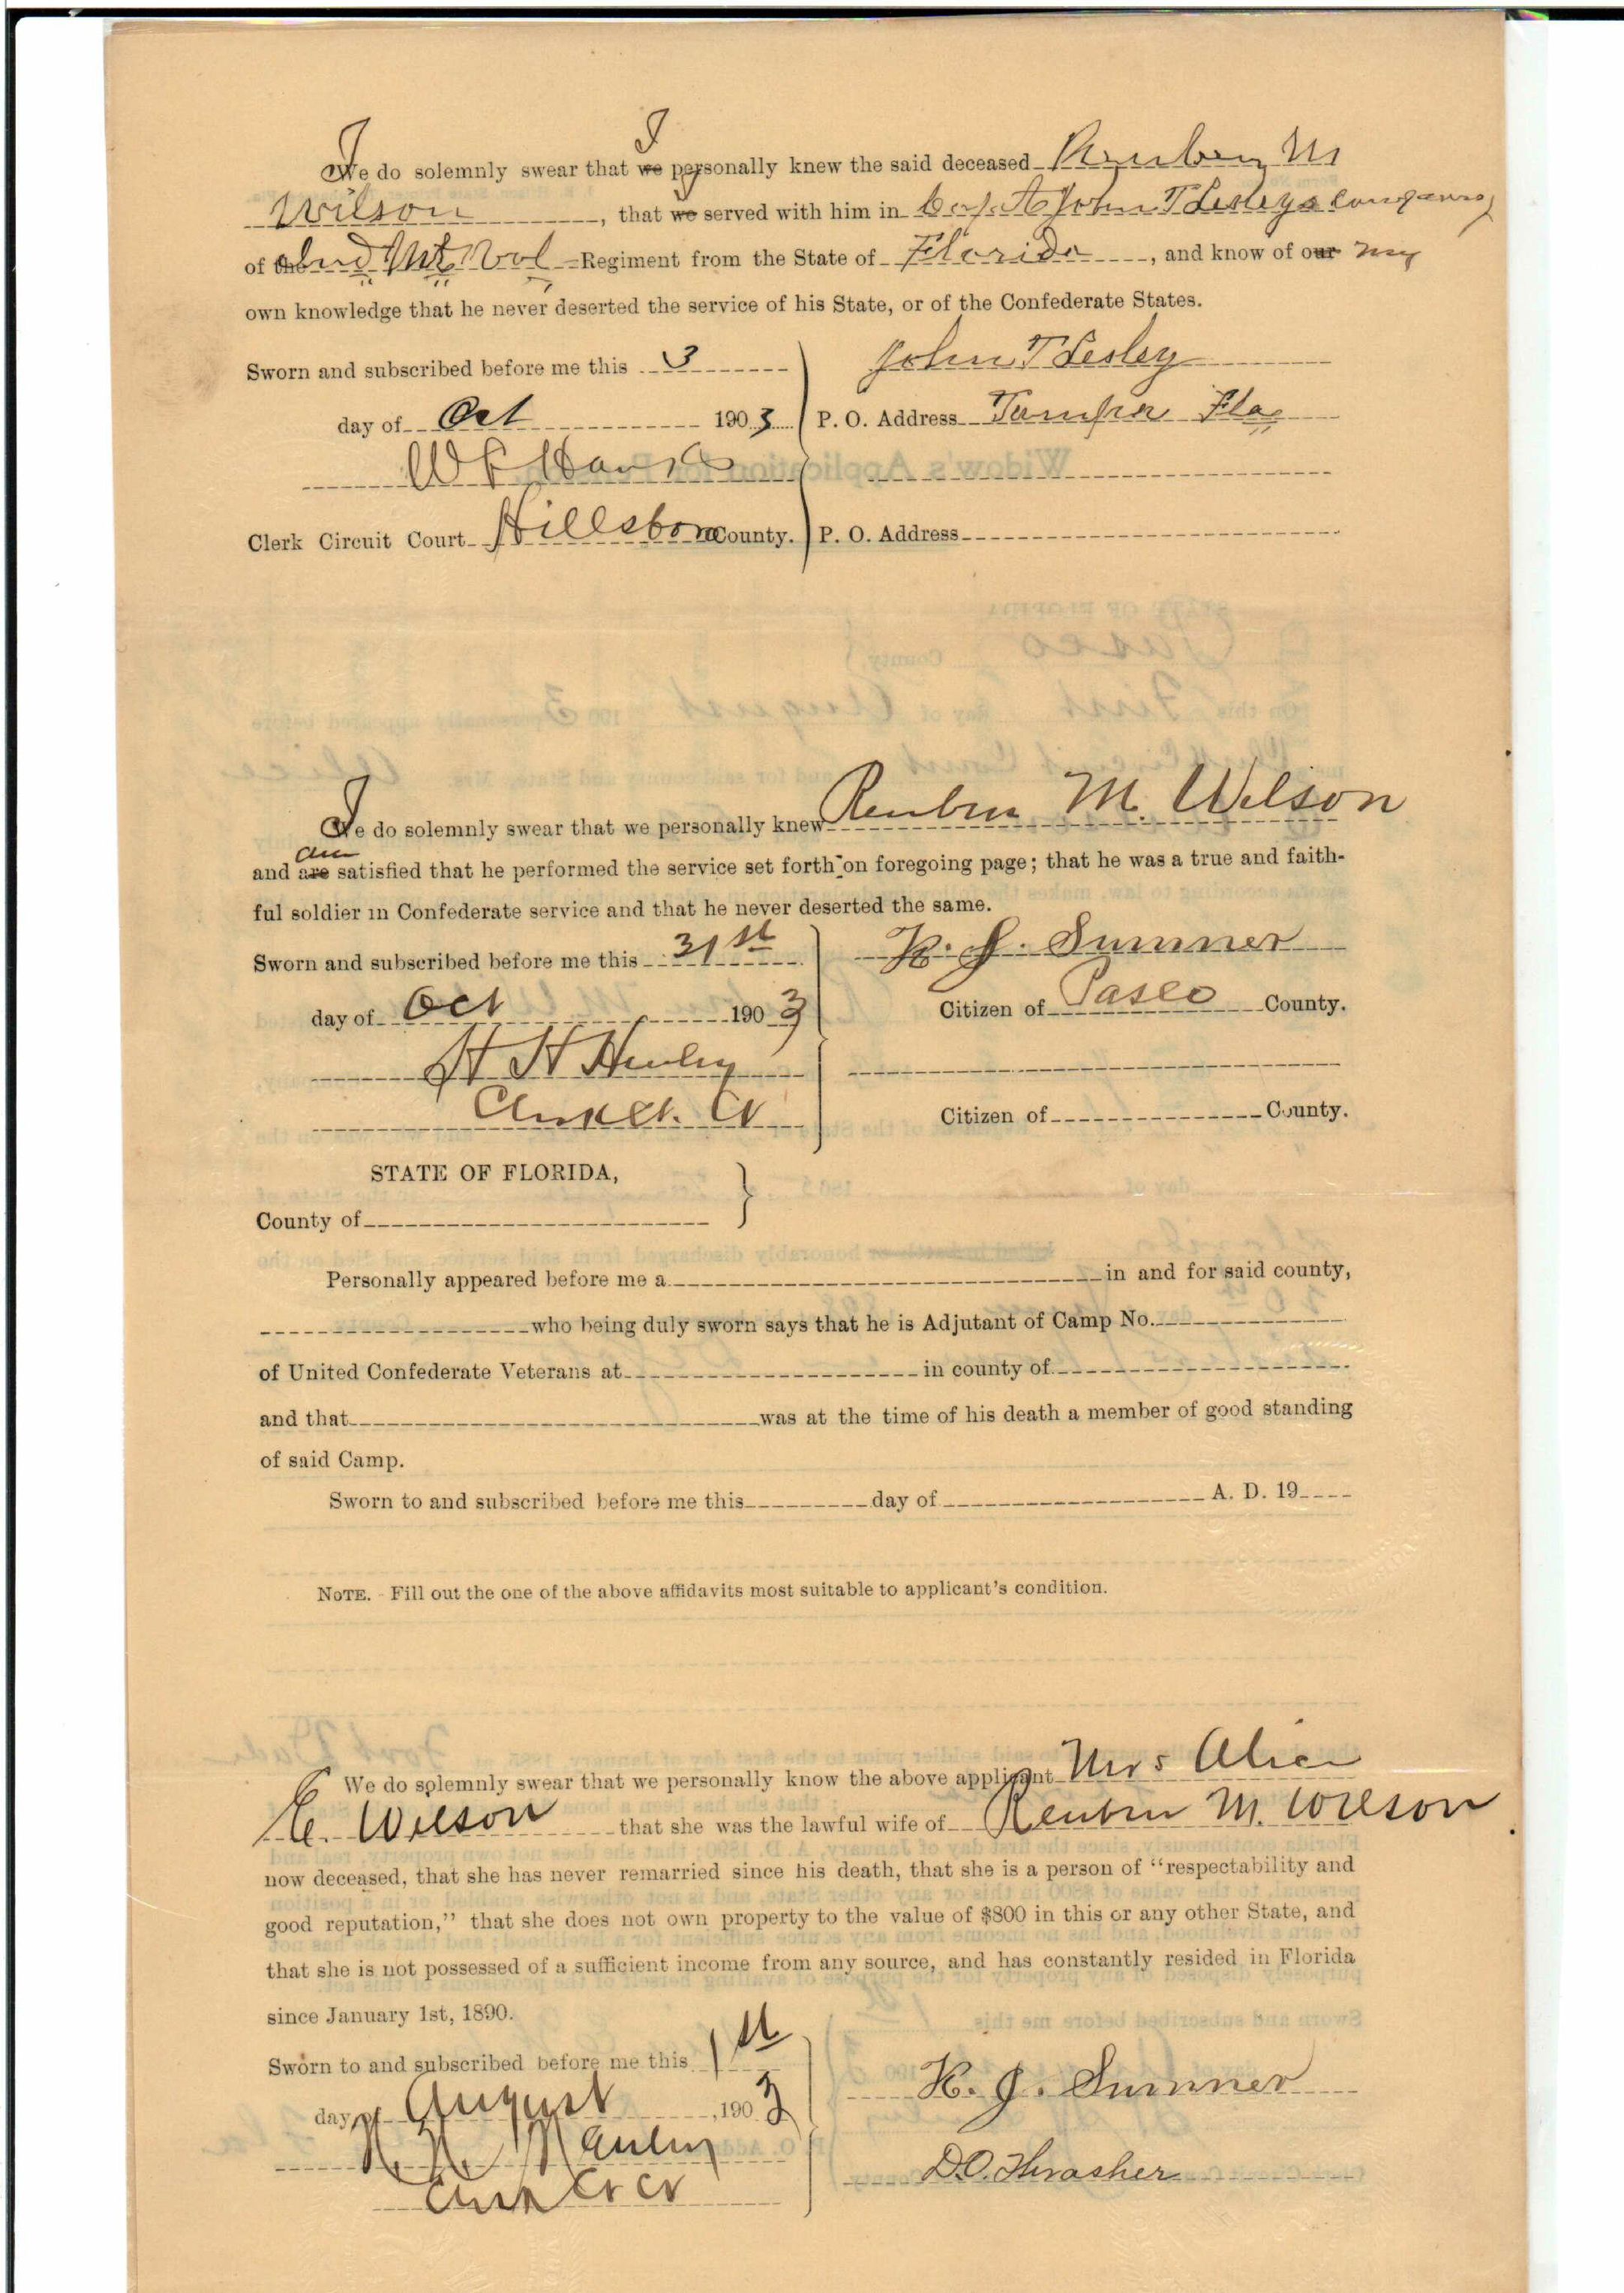 I I
We do solemnly swear that we personally knew the said deceased Reuben M
Wilson, that we served with him in Capt John T Lesleys company
of the Ind Mt Vol Regiment from the State of Florida, and know of our my
own knowledge that he never deserted the service of his State, or of the Confederate States.
Sworn and subscribed before me this 3 John T Lesley
day of Oct 1903 P. O. Address Tampa Fla
W F
Clerk Circuit Court Hillsboro County. P. O. Address
I
We do solemnly swear that we personally knew Reuben M. Wilson
am
and are satisfied that he performed the service set forth on foregoing page; that he was a true and faith-
ful soldier in Confederate service and that he never deserted the same.
Sworn and subscribed before me this 31st K. J. Sumner
day of Oct 1903 Citizen of Pasco County.
H H Henley
Clerk Ct. Ct Citizen of County.
STATE OF FLORIDA,
County of
Personally appeared before me a in and for said county,
who being duly sworn says that he is Adjutant of Camp No.
of United Confederate Veterans at in county of
and that was at the time of his death a member of good standing
of said Camp.
Sworn to and subscribed before me this day of A. D. 19
NOTE. - Fill out the one of the above affidavits most suitable to applicant's condition.
We do solemnly swear that we personally know the above applicant Mrs Alice
E. Wilson that she was the lawful wife of Reuben M. Wilson
now deceased, that she has never remarried since his death, that she is a person of "respectability and
good reputation," that she does not own property to the value of $800 in this or any other State, and
that she is not possessed of a sufficient income from any source, and has constantly resided in Florida
since January 1st, 1890.
Sworn to and subscribed before me this 1st
day of August, 1903 K. J. Sumner
H. H. Henley
Clerk Ct Ct D.O. Thrasher